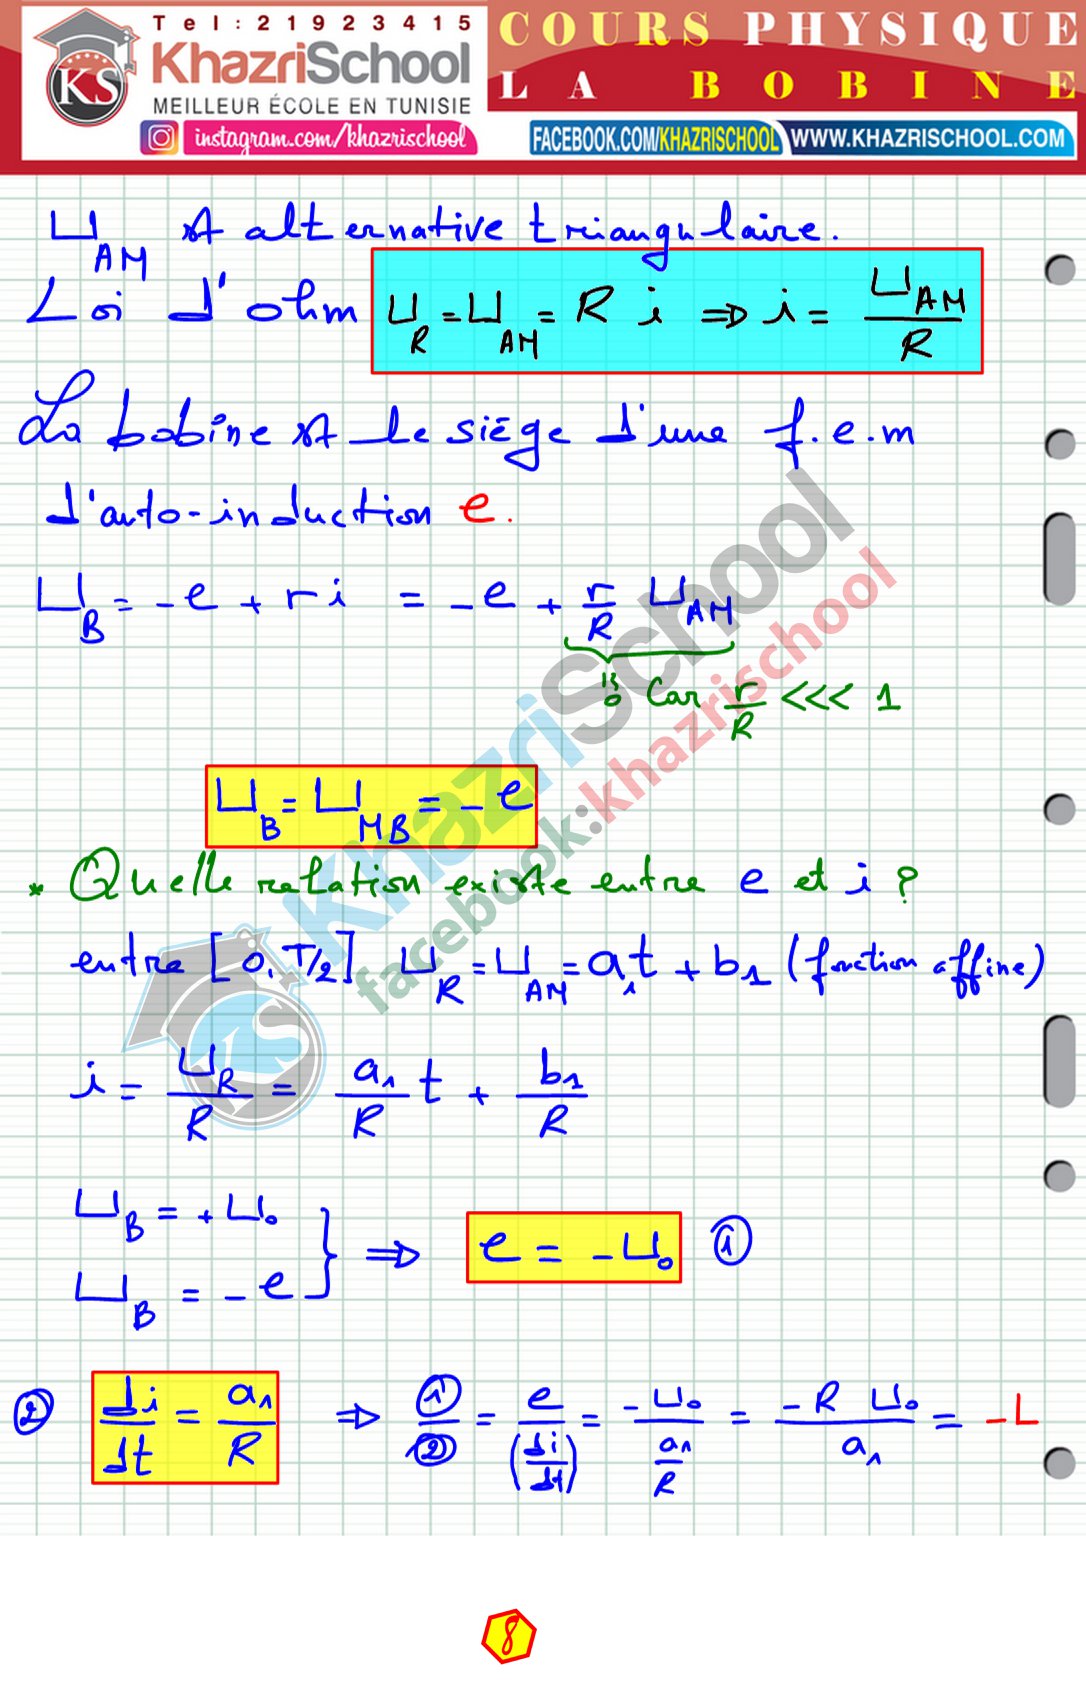 Tel: 21923415
KhazriSchool
MEILLEUR ÉCOLE EN TUNISIE
instagram.com/khazrischool
COURS PHYSIQUE
LA BOBINE
FACEBOOK.COM/KHAZRISCHOOL
WWW.KHAZRISCHOOL.COM
KS
U_AM est alternative triangulaire.
Loi d'ohm U_R = U_AM = R i ⇒ i = U_AM / R
La bobine est le siège d'une f.e.m
d'auto-induction e.
U_B = -e + r i = -e + r/R U_AM
≈ 0 Car r/R <<< 1
U_B = U_MB = -e
* Quelle relation existe entre e et i ?
entre [0, T/2] U_R = U_AM = a₁t + b₁ (fonction affine)
i = U_R/R = a₁/R t + b₁/R
U_B = + U₀
U_B = - e
} ⇒ e = - U₀ ①
② di/dt = a₁/R ⇒ ①/② = e/(di/dt) = -U₀/(a₁/R) = -R U₀/a₁ = -L
KhazriSchool
facebook:khazrischool
KS
8